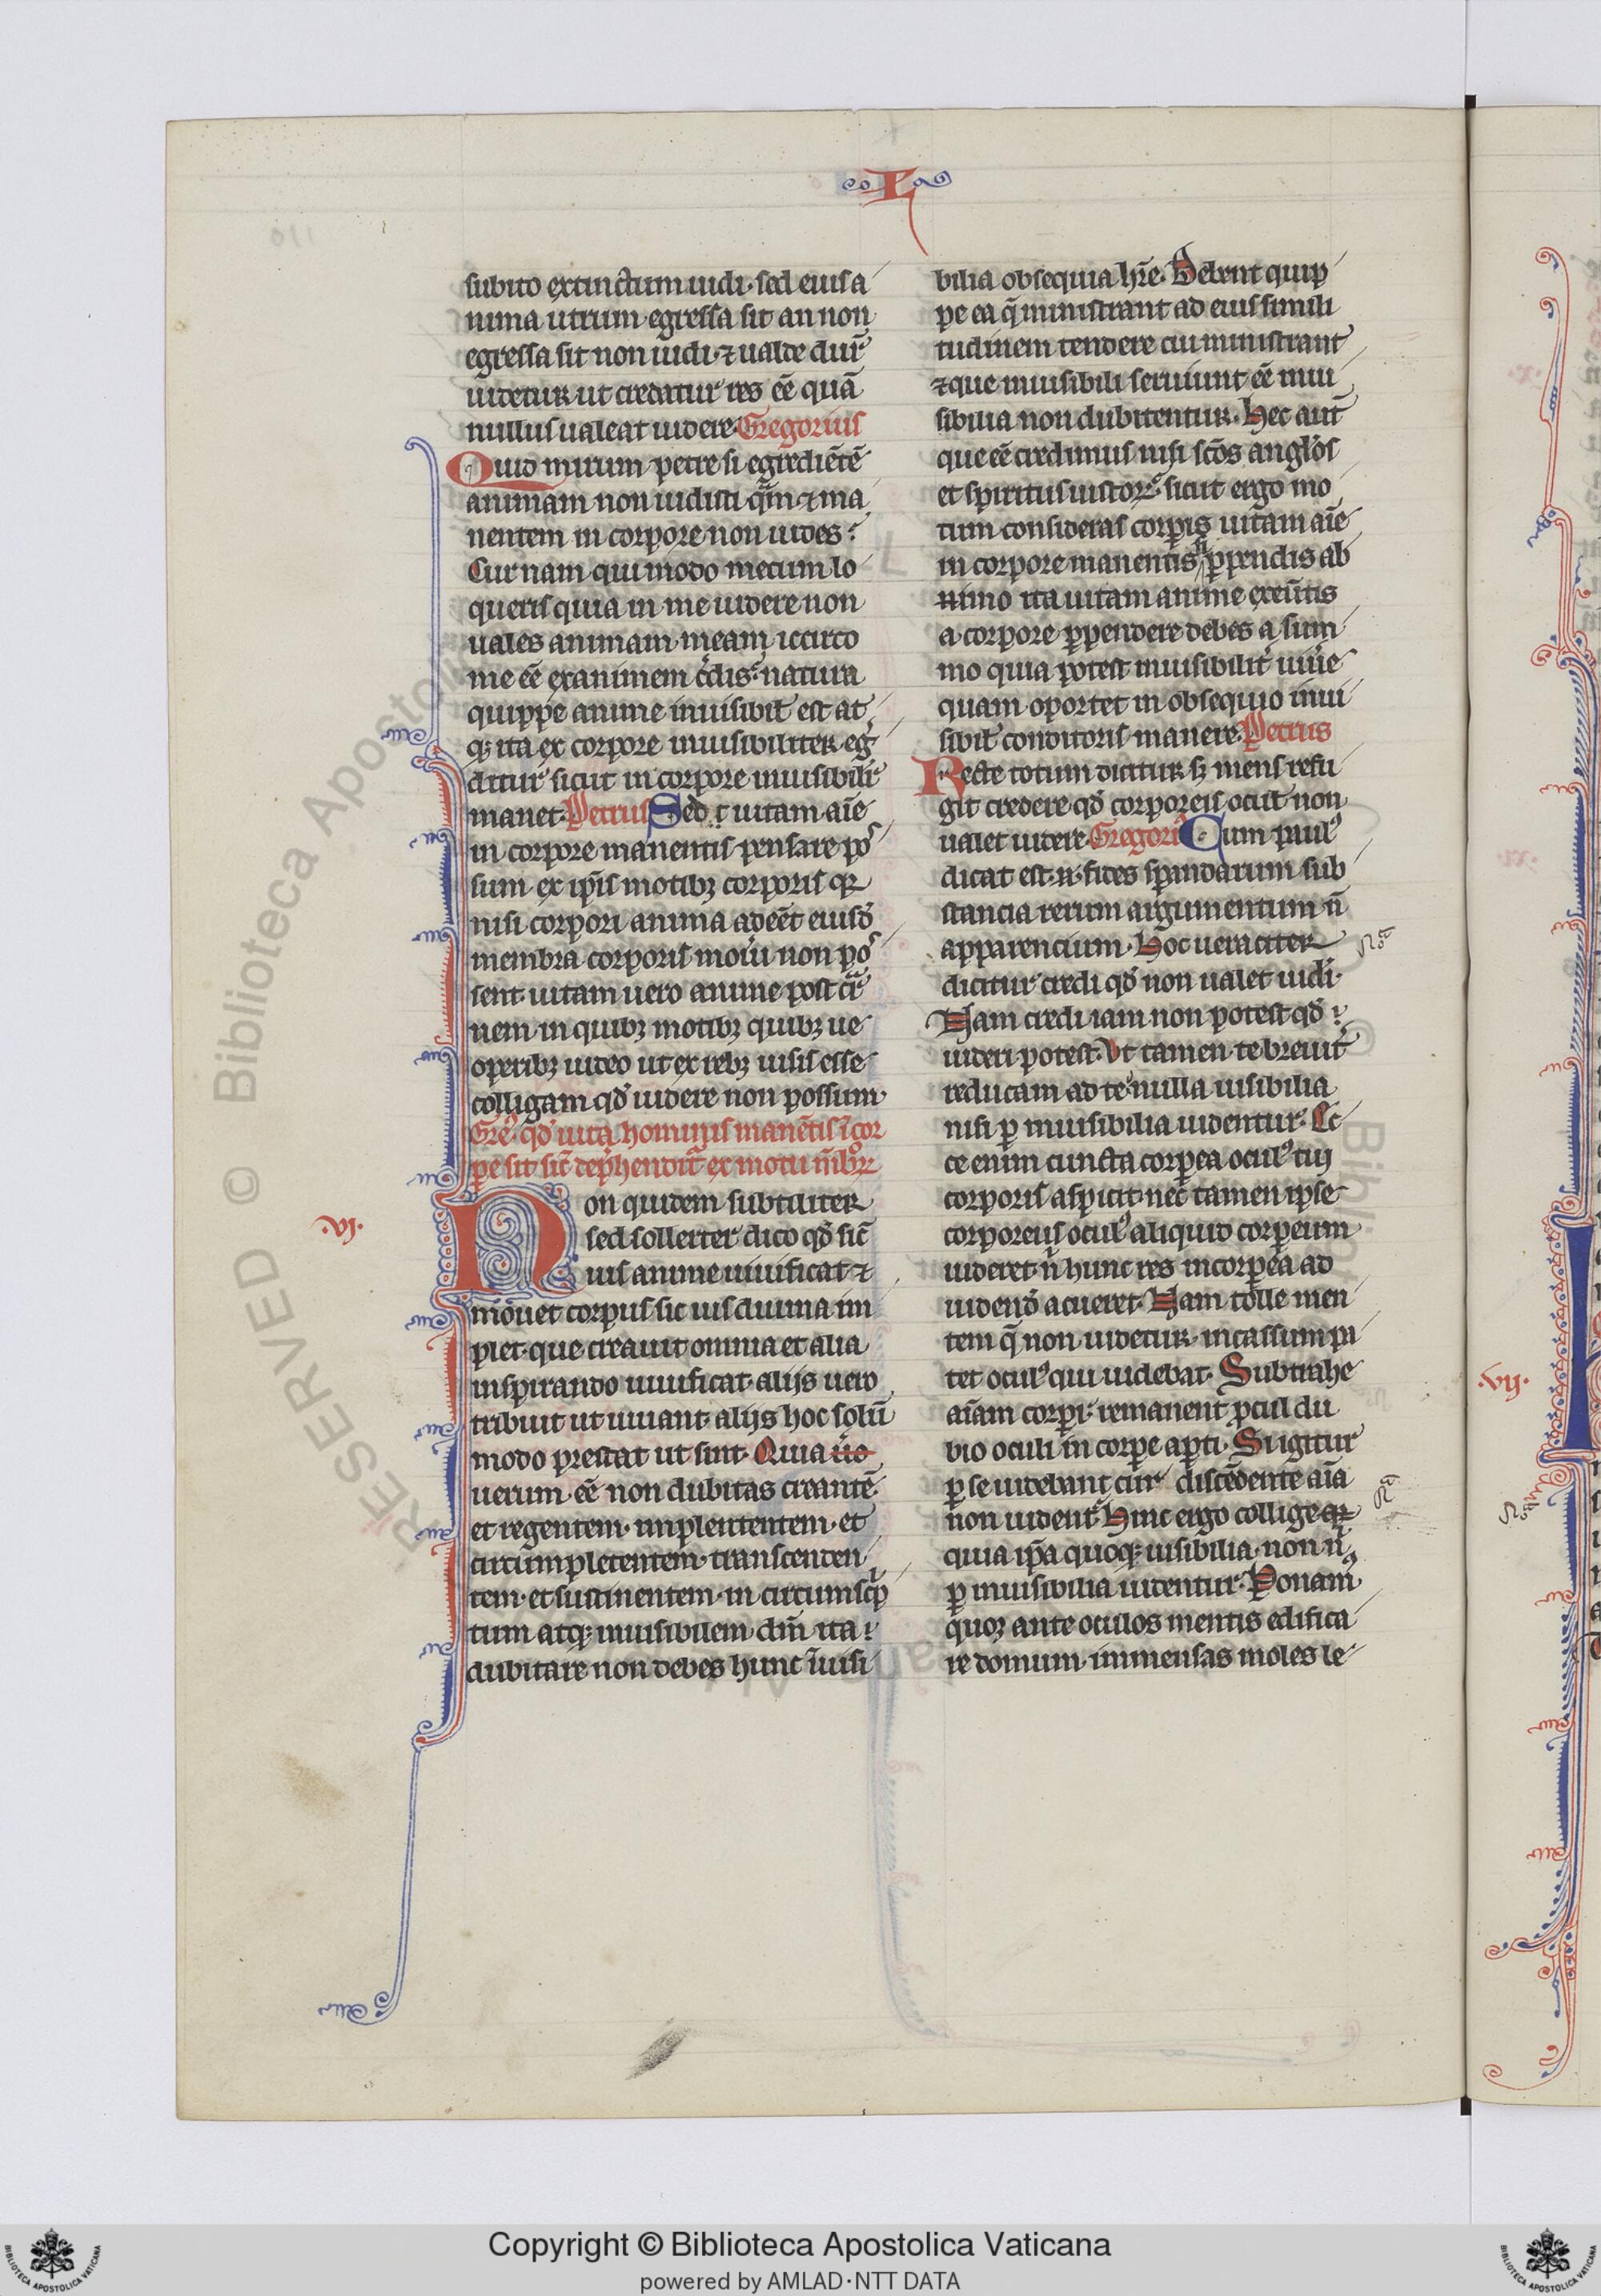 L
subito extinctum uidi· sed eius a
nima utrum egressa sit an non
egressa sit non uidi· ⁊ ualde dur̄
uidetur ut credatur res eē quā
nullus ualeat uidere· Gregorius
Quid mirum petre si egrediētē
animam non uidisti q̄m ⁊ ma
nentem in corpore non uides?
Cur nam qui modo mecum lo
queris quia in me uidere non
uales animam meam iccirco
me eē exanimem c̓dis? natura
quippe anime inuisibil̄ est at
qꝫ ita ex corpore inuisibiliter eg̓
ditur sicut in corpore inuisibilit̓
manet· Petrus Sed ⁊ uitam aīe
in corpore manentis pensare pos
sum ex ip̄is motibꝫ corporis qꝛ
nisi corpori anima adeēt eiusd̄
membra corporis mou̓i non pos
sent· uitam uero anime post car
nem in quibꝫ motibꝫ quibꝫ ue
operibꝫ uideo ut ex rebꝫ uisis esse
colligam qd̓ uidere non possum·
Gre᷒· qd̓ uita hominis manētis ī cor
pe sit sic̄ dep̓hendit̄ ex motu mēbroꝝ
·vi·
Non quidem subtiliter
sed sollerter dico qd̓ sic̄
uis anime uiuificat ⁊
mouet corpus sic uis diuina im
plet que creauit omnia et alia
inspirando uiuificat· alijs uero
tribuit ut uiuant· alijs hoc solū
modo prestat ut sint· Quia u̓o
uerum eē non dubitas creantē
et regentem· implententem· et
circumpletentem· transcenden
tem· et sustinentem· in circumsc̓p
tum atqꝫ inuisibilem dn̄i ita
dubitare non debes hunc īuisi
bilia obsequia hr̄e· Debent quip
pe ea q̄ ministrant ad eius simili
tudinem tendere cui ministrant
⁊ que inuisibili seruiunt eē inui
sibilia non dubitentur· Hec aut̄
que eē credimus nisi sc̄os angl̓os
et spiritus iustoꝝ? sicut ergo mo
tum consideras corp̄is uitam aīe
in corpore manentis ꝑpendis ab
nimo ita uitam anime exeūtis
a corpore ꝑpendere debes a sum
mo quia potest inuisibilit̓ uiu̓e
quam oportet in obsequio inui
sibil̄ conditoris manere· Petrus
Recte totum dicitur sꝫ mens refu
git credere qd̓ corporeis ocul̄ non
ualet uidere· Gregori᷒ Cum paul᷒
dicat est· n̄· fides sꝑandarum sub
stancia rerum argumentum n̄
apparencium· Hoc ueraciter
dicitur credi qd̓ non ualet uid̓i·
Nam credi iam non potest qd̓
uideri potest· Vt tamen te breuit̓
reducam ad te· nulla uisibilia
nisi ꝑ inuisibilia uidentur· Ec
ce enim cuncta corp̄ea ocul᷒ tui
corporis aspicit· nec̄ tamen ipse
corporeus ocul᷒ aliquid corp̄eum
uideret n̓ hunc res incorp̄ea ad
uidend̄ acueret· Nam tolle men
tem q̄ non uidetur· incassum pa
tet ocul᷒ qui uidebat· Subtrahe
aīam corp̄i· remanent ꝓcul du
bio oculi in corp̄e aꝑti· Si igitur
ꝑ se uidebant cur discēdente aīa
non uident? Hinc ergo collige qꝛ
quia ip̄a quoqꝫ uisibilia non n̓
ꝑ inuisibilia uidentur· Ponam᷒
quoꝫ ante oculos mentis edifica
re domum immensas moles le
·vij·